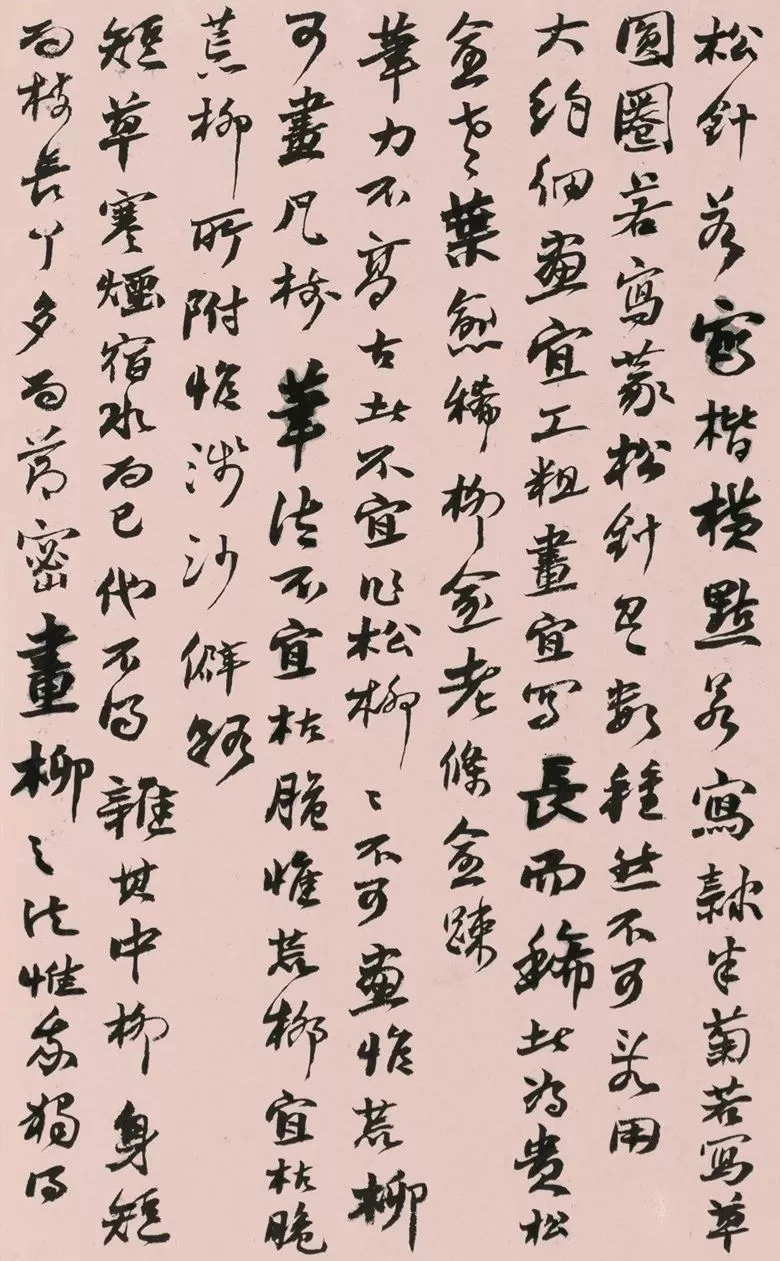 松針若寫楷橫點若寫隸半菊若寫草
圓圈若寫篆松針只數種然不可混用
大約細畫宜工粗畫宜寫長而稀此為貴松
愈老葉愈稀柳愈老條愈疎
筆力不高古者不宜作松柳〻不可畫惟荒柳
可畫凡樹筆法不宜枯脆惟荒柳宜枯脆
荒柳所附惟淺沙僻路
短草寒煙宿水而已他不得雜其中柳身短
而枝長丫多而節密畫柳之法惟我獨得